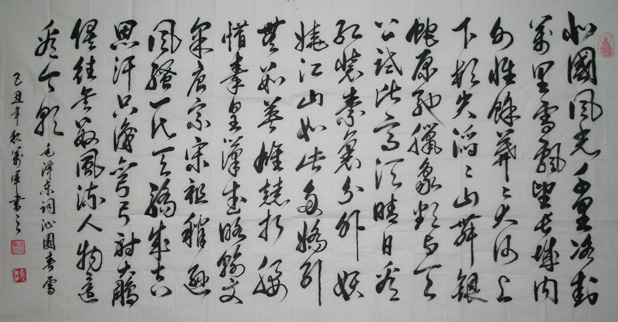 北國風光千里冰封
萬里雪飄望長城内
外惟餘莽々大河上
下頓失滔々山舞銀
蛇原馳臘象欲与天
公試比高須晴日看
紅裝素裹分外妖
嬈江山如此多嬌引
無數英雄競折腰
惜秦皇漢武略輸文
采唐宗宋祖稍遜
風騷一代天驕成吉
思汗只識彎弓射大鵰
俱往矣數風流人物還
看今朝 毛澤東詞沁園春雪
己丑年秋萬軍書之